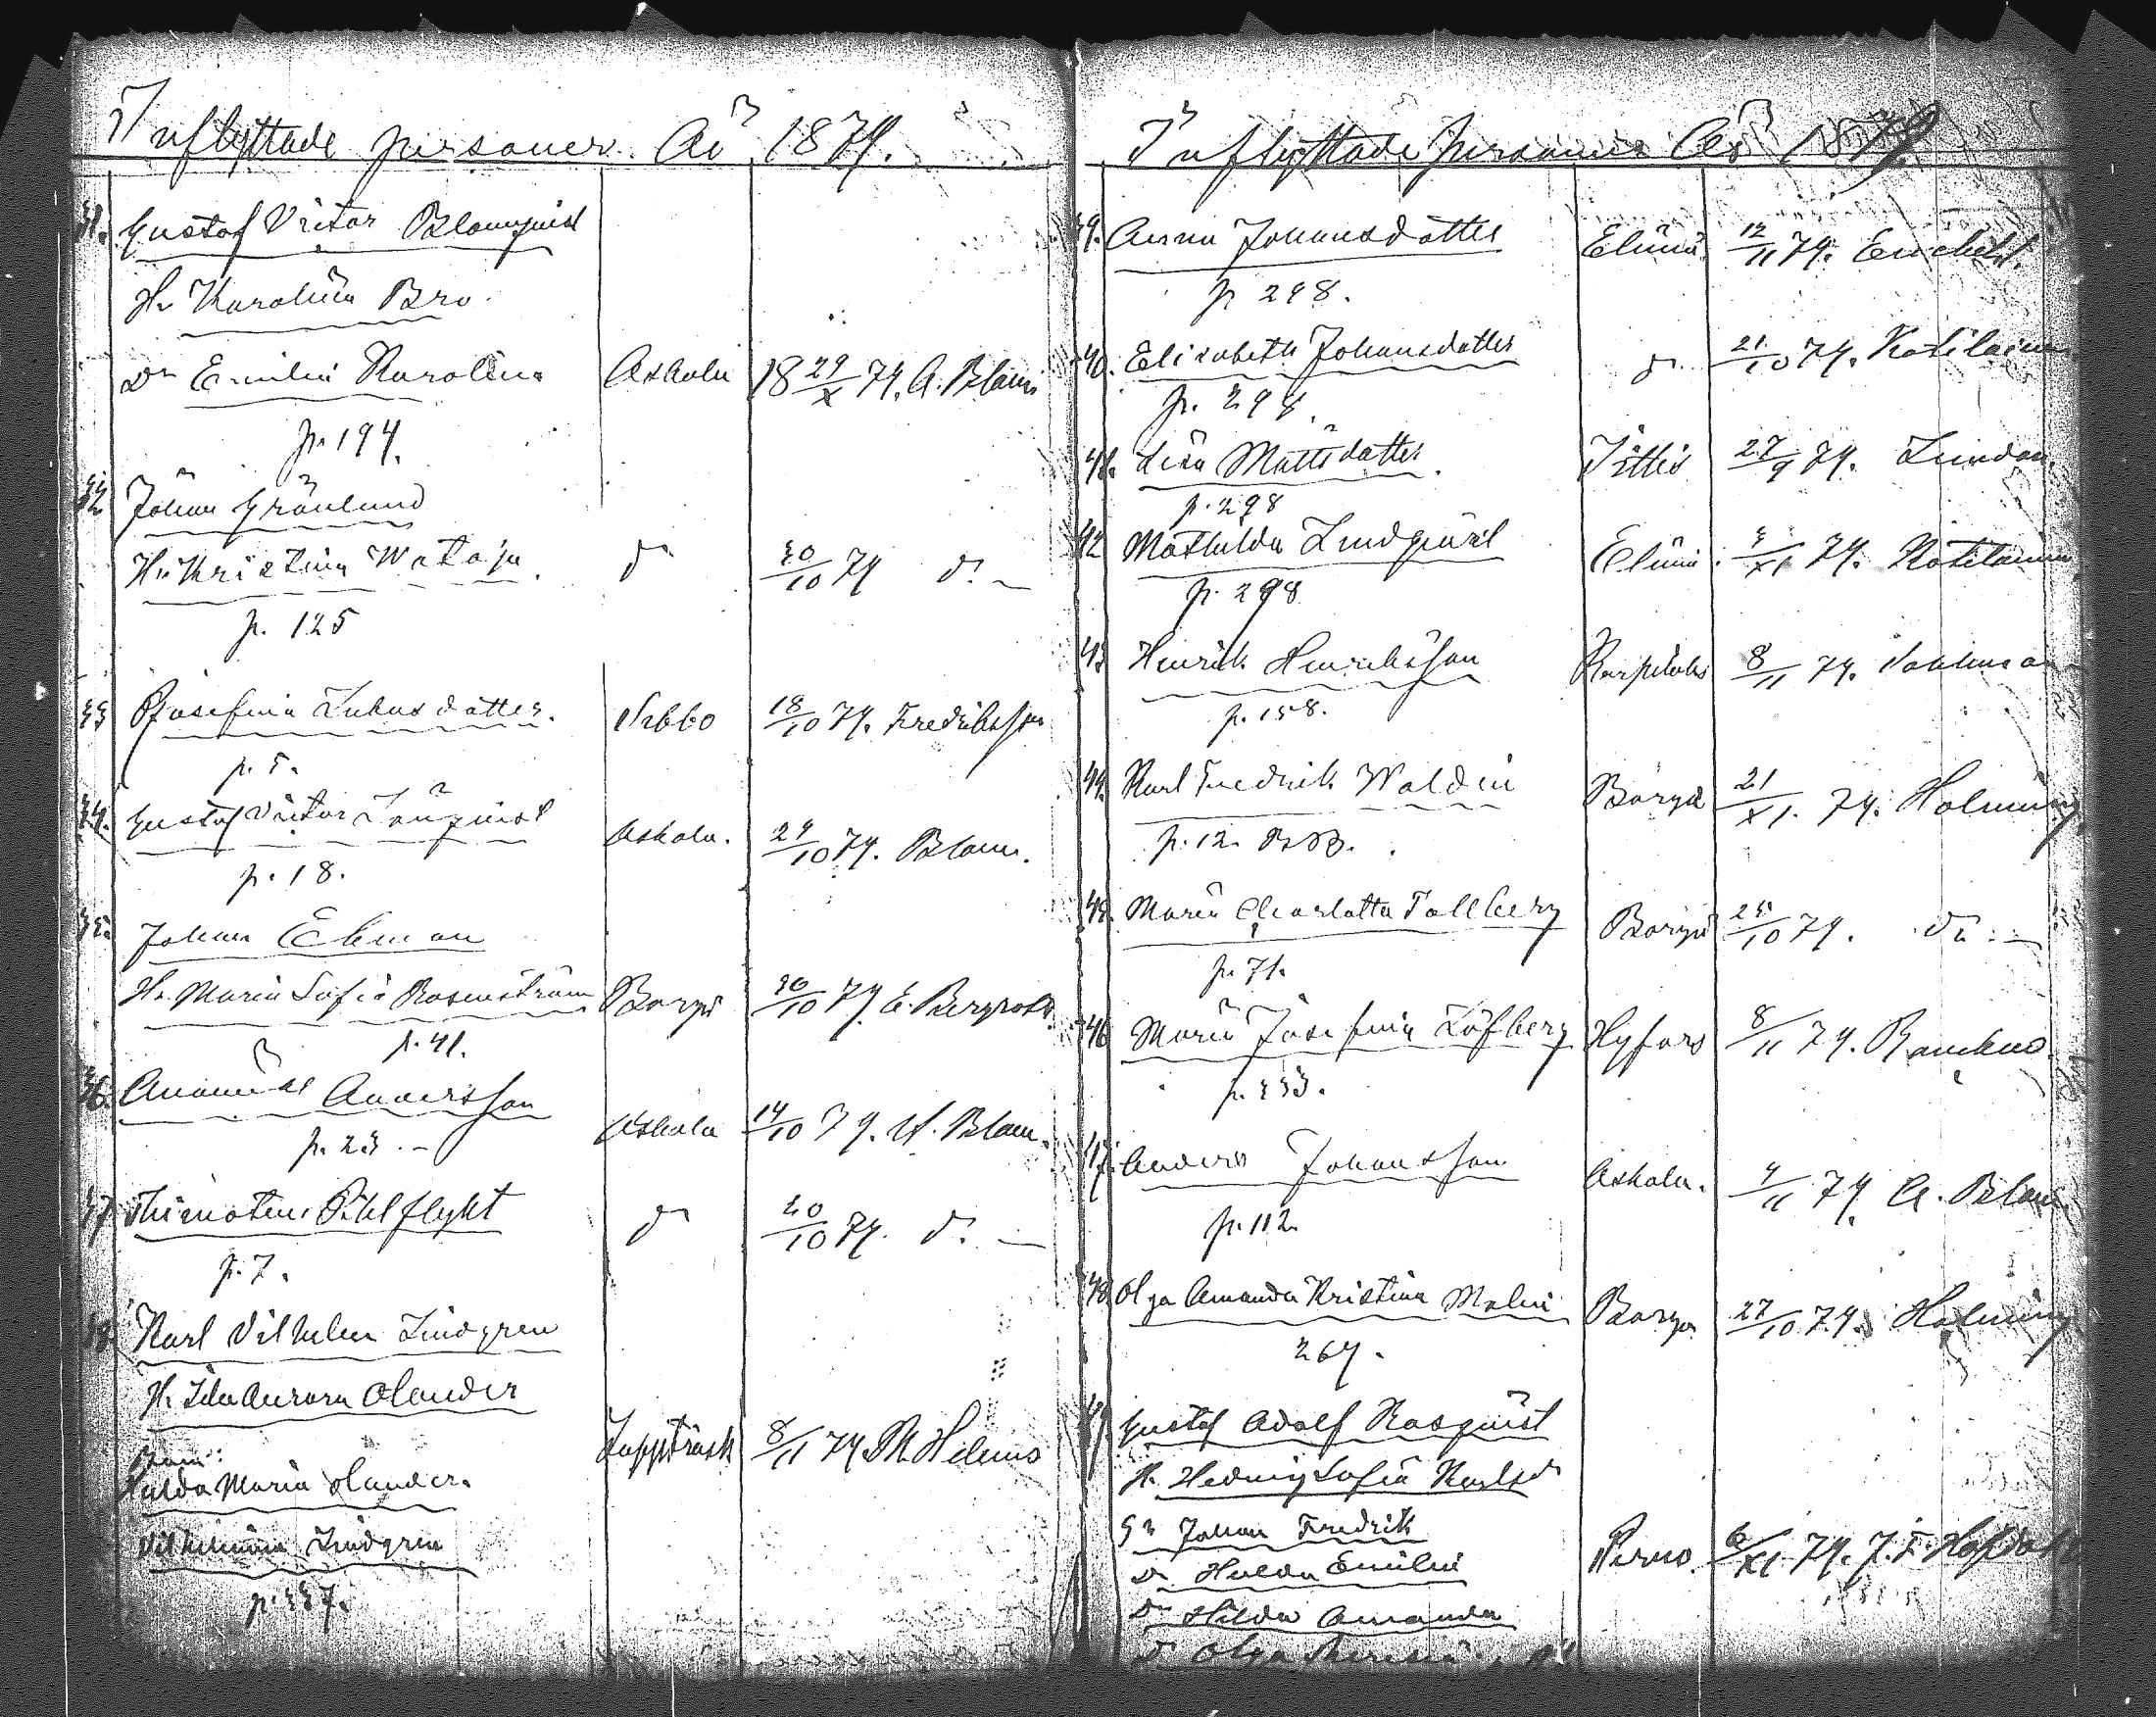 Inflyttade personer År 1874.
31. Gustaf Victor Blomqvist
H. Karolina Bro
Dr Emilia Karolina Askola 18 29/X 74. A. Blom
p. 194.
32 Johan Grönlund
H. Kristina Wataja d:o 30/10 74 d:o
p. 125
33 Josefina Lukasdotter. Sibbo 18/10 74. Fredriksson
p. 5.
34. Gustaf Victor Lönqvist Askola. 24/10 74. Blom.
p. 18.
35. Johan Ekman
H. Maria Sofia Rosenström Borgå 30/10 74. E. Bergroth
p. 41.
36. Andersson Askola 14/10 74. A. Blom.
p. 23.
37 Thimoteus Pihlflykt d:o 20/10 74. d:o
p. 7.
38 Karl Vilhelm Lindgren
H. Ida Aurora Olander
Barn: Lappträsk 8/11 74. Helenius
Hulda Maria Olander.
Vilhelmina Lindgren
p. 337.
Inflyttade personer År 1874
39. Anna Johansdotter Elimä 12/11 74.
p. 298.
40. Elisabeth Johansdotter d:o 21/10 74. Kotilainen
p. 298.
41. Lisa Mattsdotter Ittis 27/9 74. Lindan.
p. 298
42 Mathilda Lindqvist Elimä. 3/XI 74. Kotilainen
p. 298
43 Henrik Henriksson 8/11 74.
p. 158.
44. Karl Fredrik Waldin Borgå 21/XI. 74. Holming
p. 12.
45. Maria Charlotta Tallberg Borgå 25/10 74. d:o
p. 71.
46 Maria Josefina Löfberg H:fors 8/11 74.
p. 333.
47. Anders Johansson Askola. 4/11 74. A. Blom
p. 112
48. Olga Amanda Kristina Malin Borgå 27/10 74. Holming
267.
49 Gustaf Adolf Rosqvist
H. Hedvig Sofia Karlsd
Sn Johan Fredrik
Dr Hulda Emilia Perno. 6/XI 74. J. F.
Dr Hilda Amanda
Dr Olga